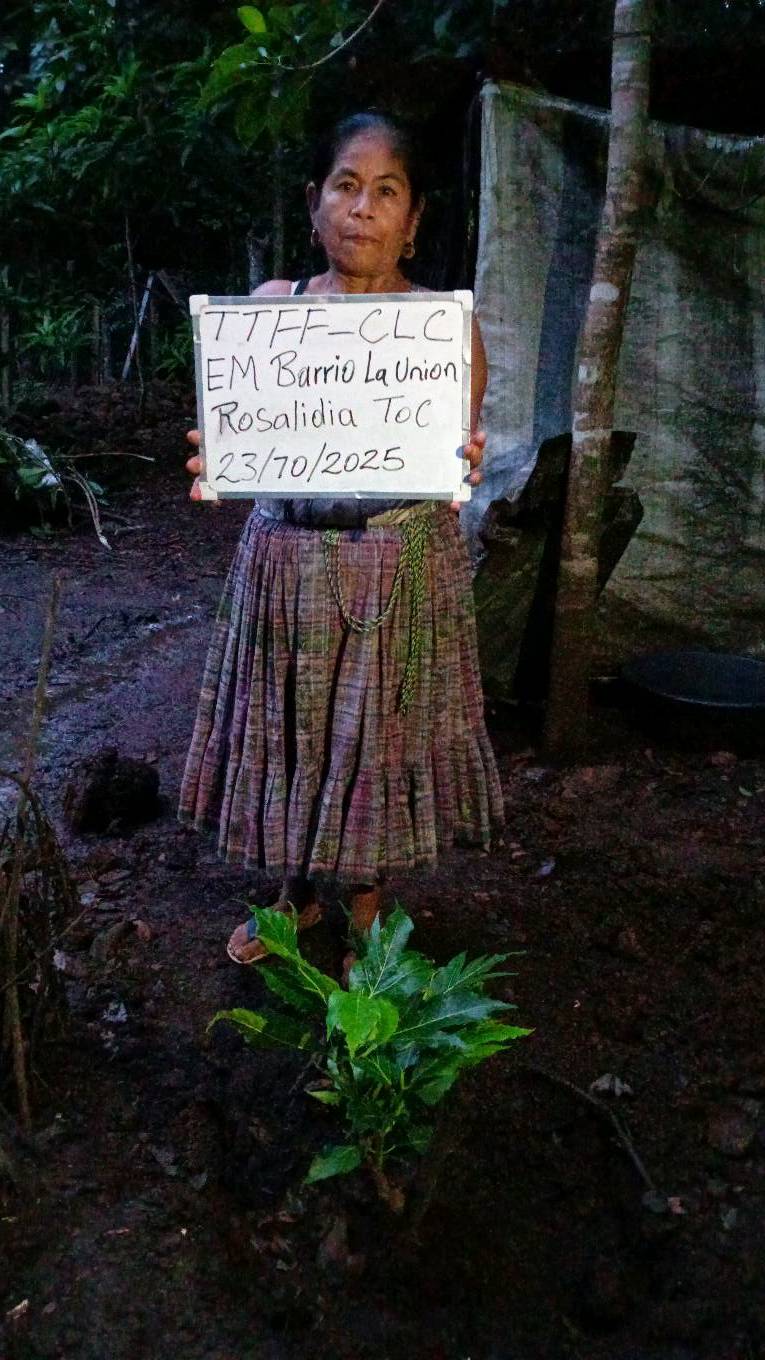 TTFF_CLC
EM Barrio La Union
Rosalidia Toc
23/70/2025